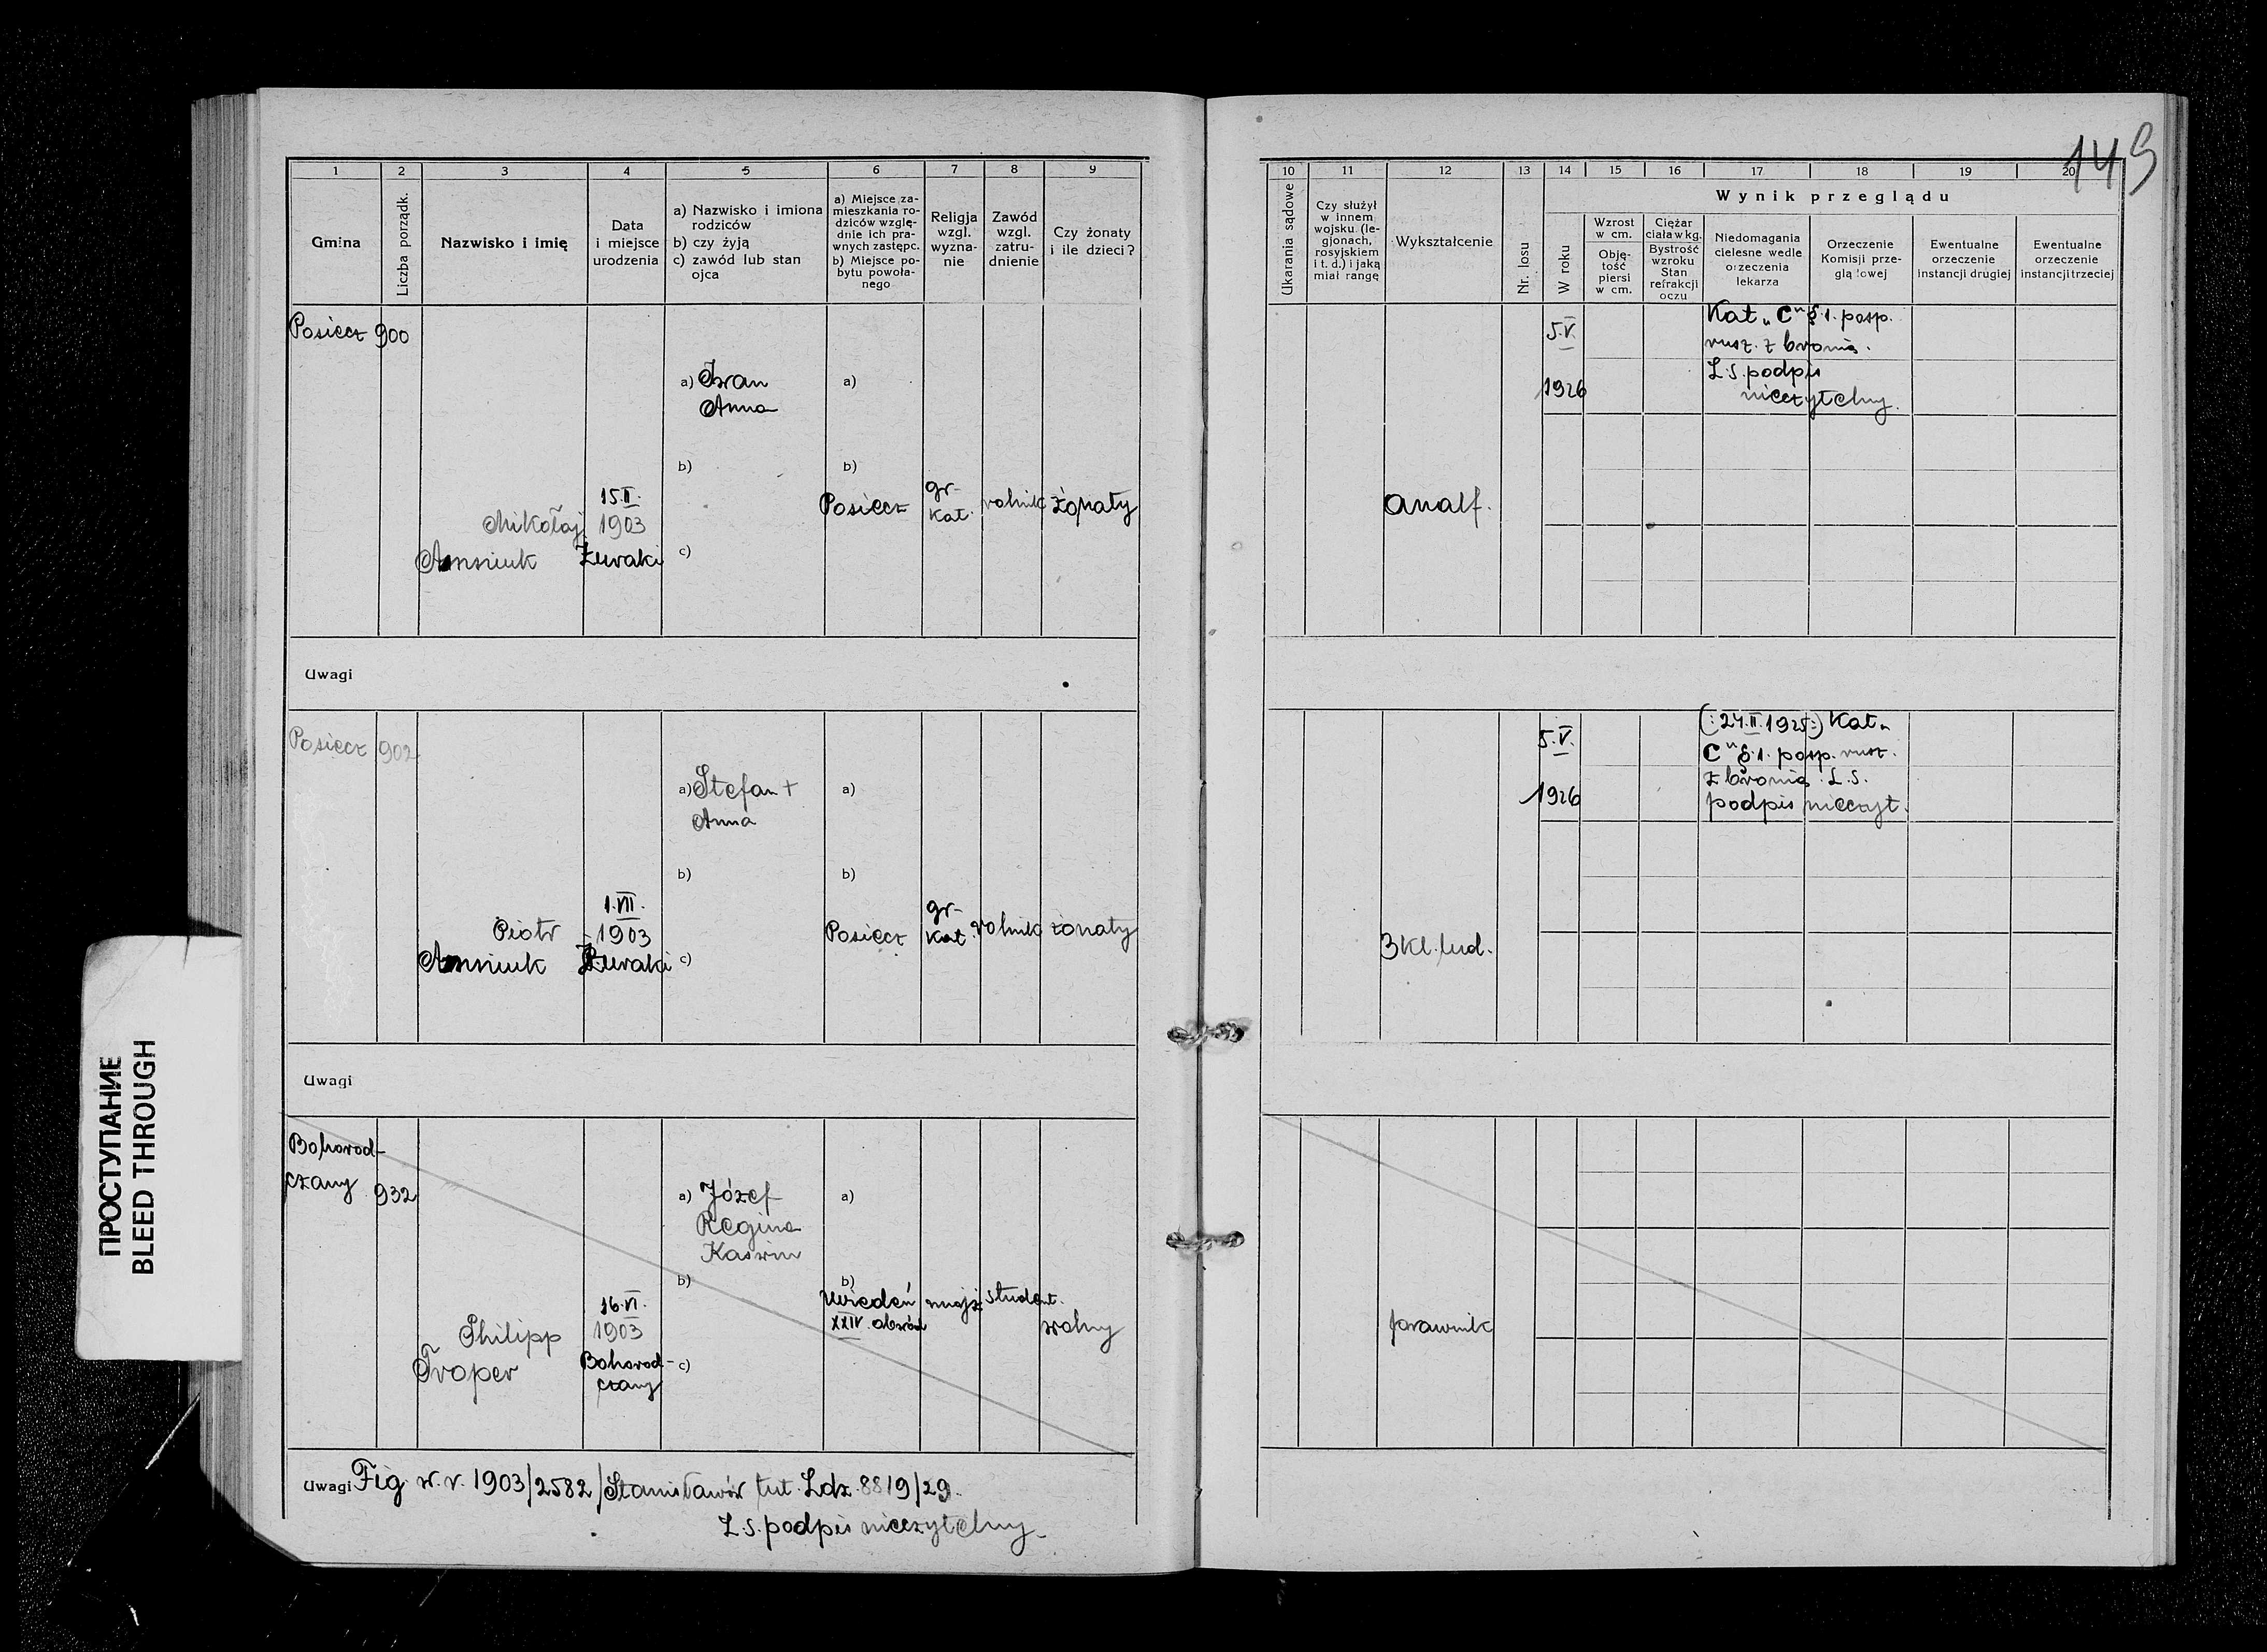 149
1 2 3 4 5 6 7 8 9
Gmina
Liczba porządk.
Nazwisko i imię
Data
i miejsce
urodzenia
a) Nazwisko i imiona
rodziców
b) czy żyją
c) zawód lub stan
ojca
a) Miejsce za-
mieszkania ro-
dziców wzglę-
dnie ich pra-
wnych zastępc.
b) Miejsce po-
bytu powoła-
nego
Religja
wzgl.
wyzna-
nie
Zawód
wzgl.
zatru-
dnienie
Czy żonaty
i ile dzieci?
10 11 12 13 14 15 16 17 18 19 20
Ukarania sądowe
Czy służył
w innem
wojsku (le-
gjonach,
rosyjskiem
i t. d.) i jaką
miał rangę
Wykształcenie
Nr. losu
Wynik przeglądu
W roku
Wzrost
w cm.
Obję-
tość
piersi
w cm.
Ciężar
ciała w kg.
Bystrość
wzroku
Stan
refrakcji
oczu
Niedomagania
cielesne wedle
orzeczenia
lekarza
Orzeczenie
Komisji prze-
glądowej
Ewentualne
orzeczenie
instancji drugiej
Ewentualne
orzeczenie
instancji trzeciej
Posiecz 900
Mikołaj
15.II.
1903
Żuraki
a) Iwan
Anna
b)
c)
a)
b)
Posiecz
gr-
kat.
rolnik
żonaty
analf.
5.V.
1926
Kat „C" §.1. posp.
rusz. z bronią.
L.S. podpis
nieczytelny.
Uwagi
Posiecz 902
Piotr
1.VII.
1903
Żuraki
a) Stefan +
Anna
b)
c)
a)
b)
Posiecz
gr-
kat.
rolnik
żonaty
3 kl. lud.
5.V.
1926
(:24.II.1925:) Kat „
C" §.1. posp. rusz.
z bronią L.S.
podpis nieczyt.
Uwagi
Bohorod-
czany 932
Philipp
Troper
16.VI.
1903
Bohorod-
czany
a) Józef
Regina
b)
c)
a)
b)
Wiedeń
XXIV. obwód
mojż.
student.
wolny
prawnik
Uwagi Fig w. r. 1903/2582/Stanisławów tut. Ldz. 8819/29.
L.S. podpis nieczytelny.
ПРОСТУПАНИЕ
BLEED THROUGH